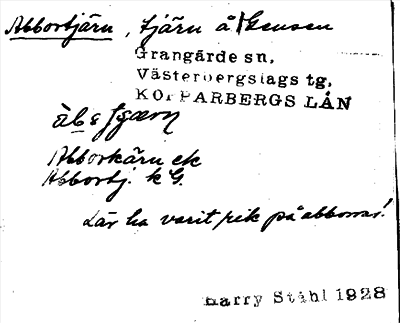 Abbortjärn, tjärn å Gensen
Grangärde sn,
Västerbergslags tg,
KOPPARBERGS LÄN
Abborkärn ek
Abbortj. k G.
Lär ha varit rik på abborrar!
Harry Ståhl 1928